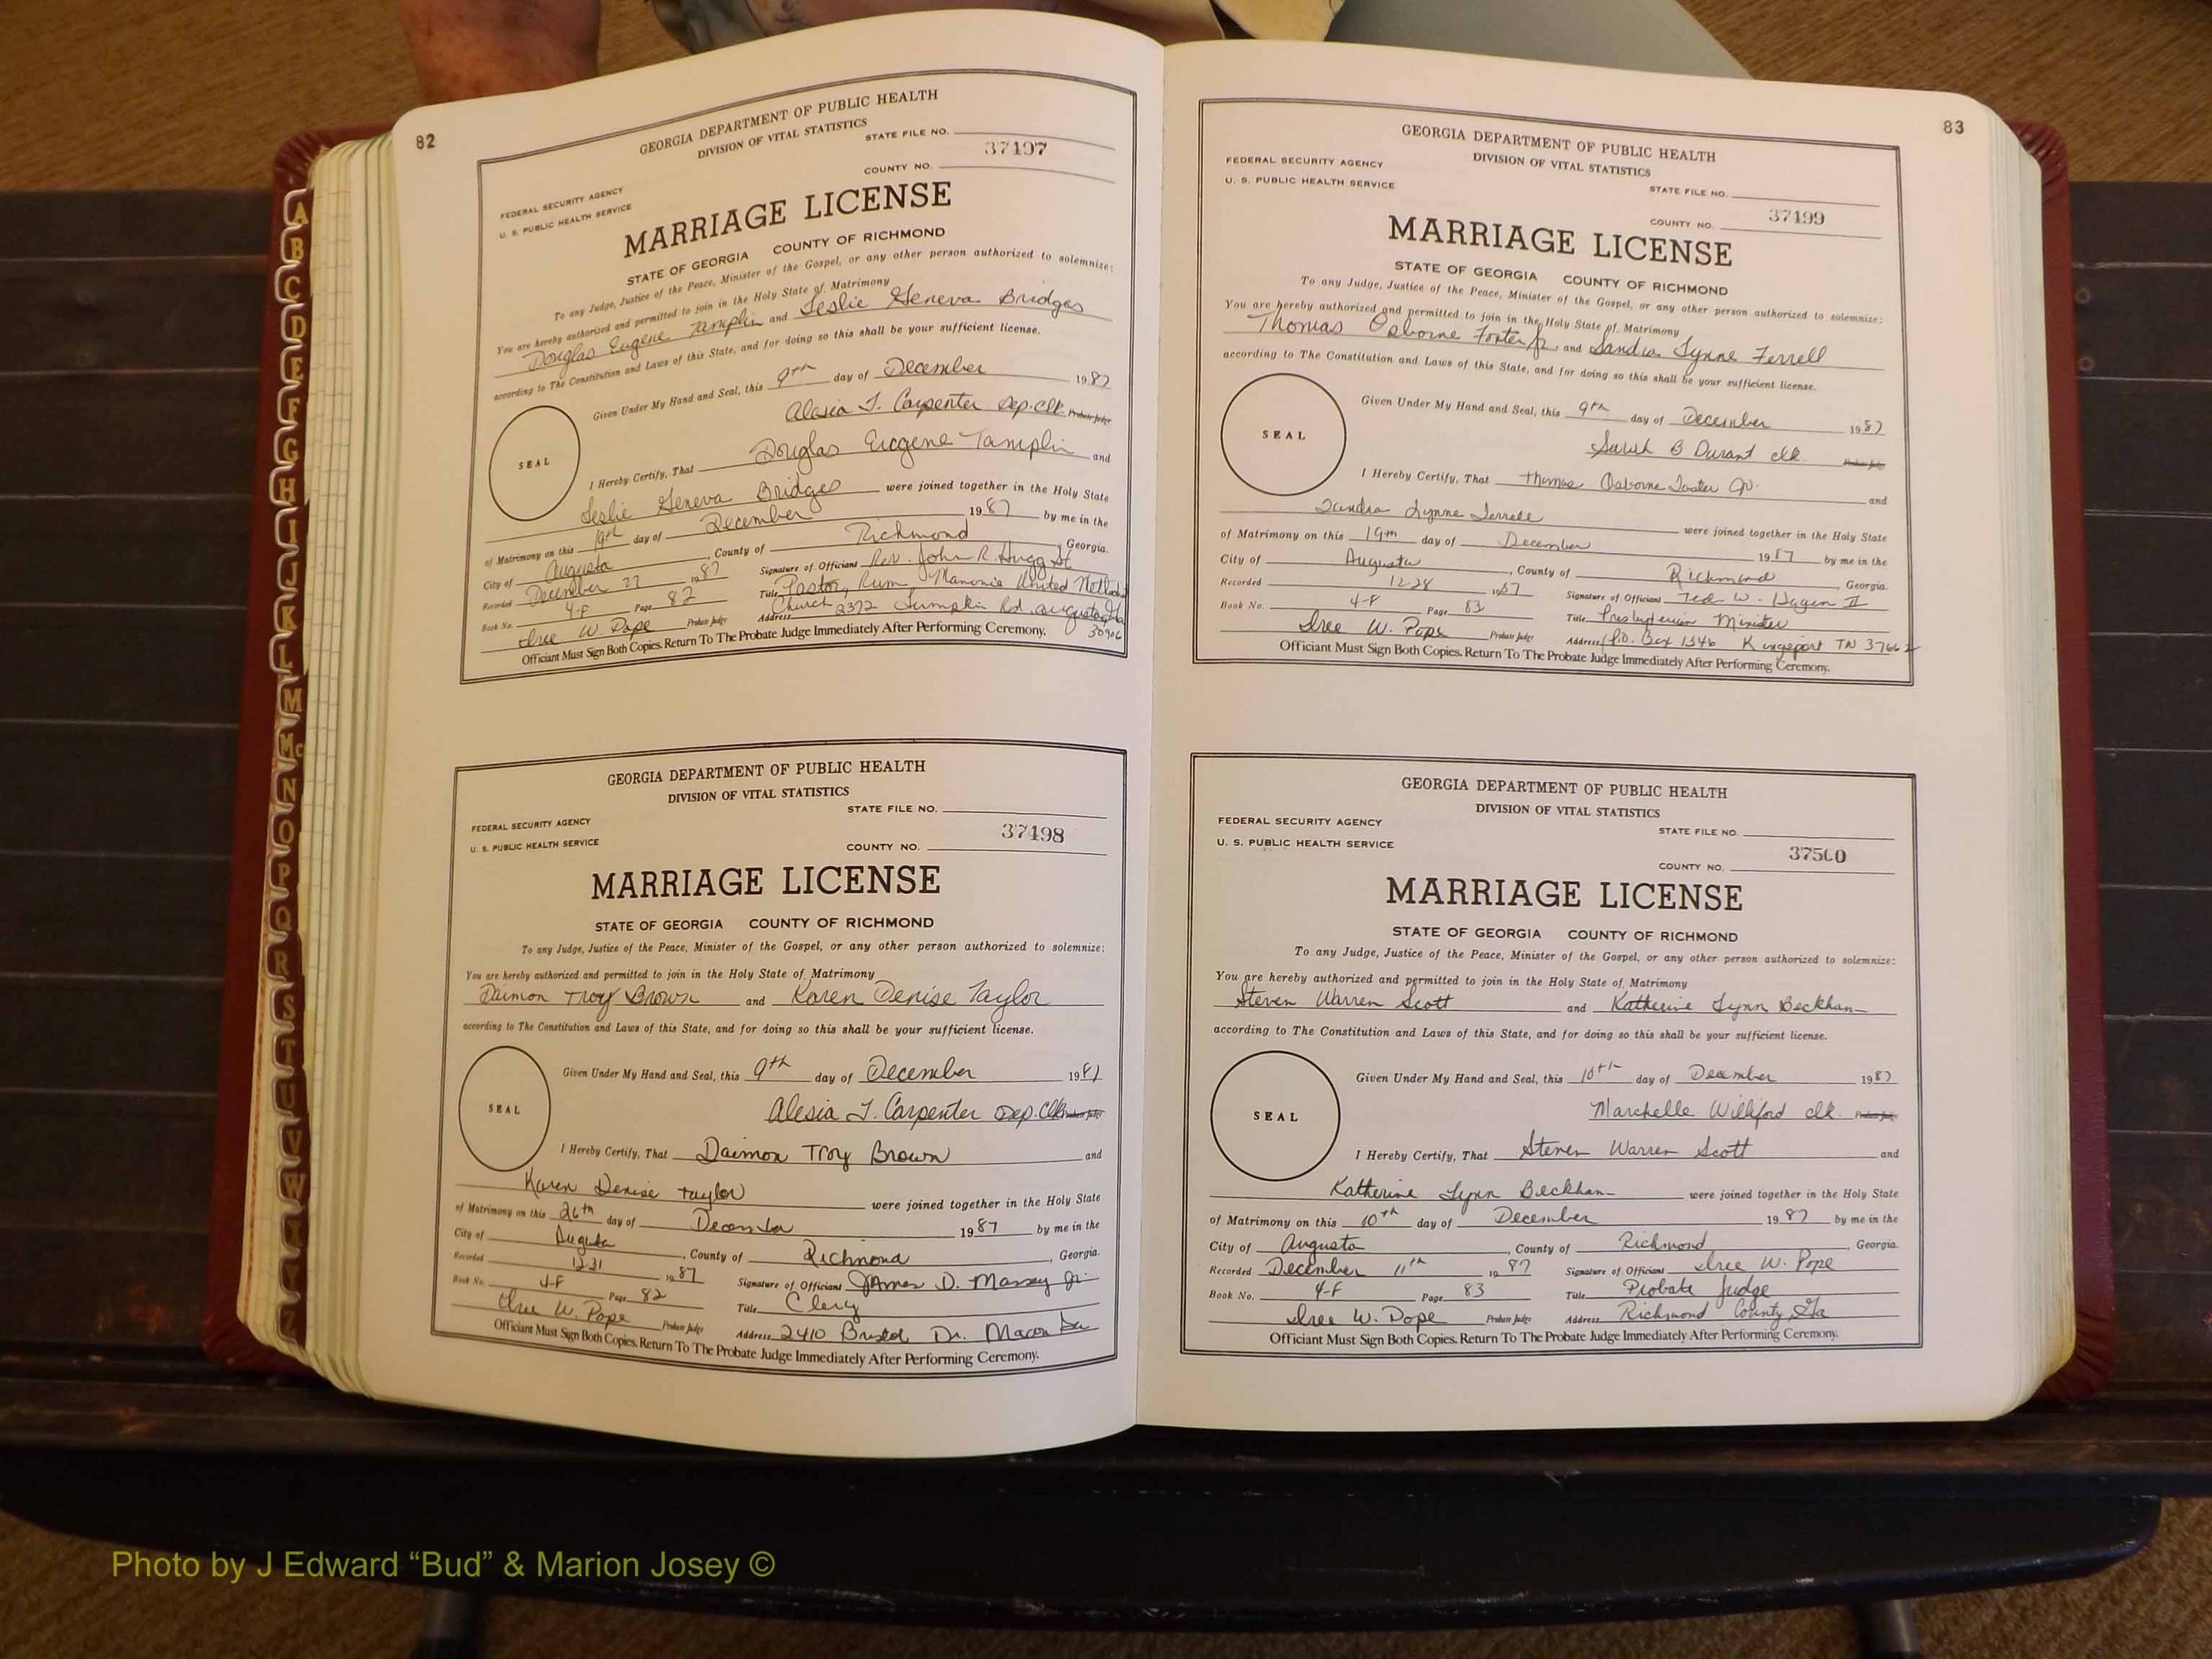 82
GEORGIA DEPARTMENT OF PUBLIC HEALTH
DIVISION OF VITAL STATISTICS
STATE FILE NO.
37497
COUNTY NO.
FEDERAL SECURITY AGENCY
U. S. PUBLIC HEALTH SERVICE
MARRIAGE LICENSE
STATE OF GEORGIA COUNTY OF RICHMOND
To any Judge, Justice of the Peace, Minister of the Gospel, or any other person authorized to solemnize:
You are hereby authorized and permitted to join in the Holy State of Matrimony
Douglas Eugene Tamplin and Leslie Geneva Bridges
according to The Constitution and Laws of this State, and for doing so this shall be your sufficient license.
Given Under My Hand and Seal, this 9th day of December 1987
Alesia J. Carpenter Dep. Clk. Probate Judge
SEAL
I Hereby Certify, That Douglas Eugene Tamplin and
Leslie Geneva Bridges were joined together in the Holy State
of Matrimony on this 19th day of December 1987 by me in the
City of Augusta, County of Richmond, Georgia.
Recorded December 27 1987 Signature of Officiant Rev. John R.
Book No. 4-F Page 82 Title Pastor, United Methodist
Church Address 2372 Lumpkin Rd. Augusta, Ga
30906
Probate Judge
Officiant Must Sign Both Copies. Return To The Probate Judge Immediately After Performing Ceremony.
GEORGIA DEPARTMENT OF PUBLIC HEALTH
DIVISION OF VITAL STATISTICS
STATE FILE NO.
FEDERAL SECURITY AGENCY
37498
U. S. PUBLIC HEALTH SERVICE
COUNTY NO.
MARRIAGE LICENSE
STATE OF GEORGIA COUNTY OF RICHMOND
To any Judge, Justice of the Peace, Minister of the Gospel, or any other person authorized to solemnize:
You are hereby authorized and permitted to join in the Holy State of Matrimony
Daimon Troy Brown and Karen Denise Taylor
according to The Constitution and Laws of this State, and for doing so this shall be your sufficient license.
Given Under My Hand and Seal, this 9th day of December 1987
Alesia J. Carpenter Dep. Clk. Probate Judge
SEAL
I Hereby Certify, That Daimon Troy Brown and
Karen Denise Taylor were joined together in the Holy State
of Matrimony on this 26th day of December 1987 by me in the
City of Augusta, County of Richmond, Georgia.
Recorded 12-31 1987 Signature of Officiant James D. Massey Jr.
Book No. 4-F Page 82 Title Clergy
W. Pope Probate Judge Address 2410 Bristol Dr. Macon
Officiant Must Sign Both Copies. Return To The Probate Judge Immediately After Performing Ceremony.
83
GEORGIA DEPARTMENT OF PUBLIC HEALTH
DIVISION OF VITAL STATISTICS
FEDERAL SECURITY AGENCY
U. S. PUBLIC HEALTH SERVICE
STATE FILE NO.
37499
COUNTY NO.
MARRIAGE LICENSE
STATE OF GEORGIA COUNTY OF RICHMOND
To any Judge, Justice of the Peace, Minister of the Gospel, or any other person authorized to solemnize:
You are hereby authorized and permitted to join in the Holy State of Matrimony
Thomas Osborne Foster Jr. and Sandra Lynne Ferrell
according to The Constitution and Laws of this State, and for doing so this shall be your sufficient license.
Given Under My Hand and Seal, this 9th day of December 1987
Sarah B Durant clk. Probate Judge
SEAL
I Hereby Certify, That Thomas Osborne Foster Jr. and
Sandra Lynne Ferrell were joined together in the Holy State
of Matrimony on this 19th day of December 1987 by me in the
City of Augusta, County of Richmond, Georgia.
Recorded 12-28 1987 Signature of Officiant Ted W. Hagen II
Book No. 4-F Page 83 Title Presbyterian Minister
W. Pope Probate Judge Address P.O. Box 1346 Kingsport TN 37662
Officiant Must Sign Both Copies. Return To The Probate Judge Immediately After Performing Ceremony.
GEORGIA DEPARTMENT OF PUBLIC HEALTH
DIVISION OF VITAL STATISTICS
FEDERAL SECURITY AGENCY
STATE FILE NO.
U. S. PUBLIC HEALTH SERVICE
37500
COUNTY NO.
MARRIAGE LICENSE
STATE OF GEORGIA COUNTY OF RICHMOND
To any Judge, Justice of the Peace, Minister of the Gospel, or any other person authorized to solemnize:
You are hereby authorized and permitted to join in the Holy State of Matrimony
Steven Warren Scott and Katherine Lynn Beckham
according to The Constitution and Laws of this State, and for doing so this shall be your sufficient license.
Given Under My Hand and Seal, this 10th day of December 1987
Marchelle Williford clk. Probate Judge
SEAL
I Hereby Certify, That Steven Warren Scott and
Katherine Lynn Beckham were joined together in the Holy State
of Matrimony on this 10th day of December 1987 by me in the
City of Augusta, County of Richmond, Georgia.
Recorded December 11th 1987 Signature of Officiant W. Pope
Book No. 4-F Page 83 Title Probate Judge
W. Pope Probate Judge Address Richmond County Ga
Officiant Must Sign Both Copies. Return To The Probate Judge Immediately After Performing Ceremony.
A
B
C
D
E
F
G
H
I
J
K
L
M
Mc
N
O
P
Q
R
S
T
U
V
W
Z
Photo by J Edward “Bud” & Marion Josey ©